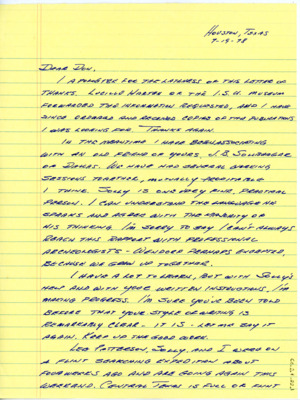 Houston, Texas
7-15-78
Dear Don,
I apologize for the lateness of this letter of
thanks. Lucille Harten of the I.S.U. Museum
forwarded the information requested, and I have
since ordered and received copies of the publications
I was looking for. Thanks again.
In the meantime I have been associating
with an old friend of yours, J.B. Sollberger
of Dallas. We have had several working
sessions together, mutually profitable
I think. Solly is one very fine, practical
person. I can understand the language he
speaks and agree with the majority of
his thinking. I'm sorry to say I can't always
reach this rapport with professional
archeologists - 
because we grew up together.
I have a lot to learn, but with Solly's
help and with your written instructions, I'm
making progress. I'm sure you've been told
before that your style of writing is
remarkably clear - it is - let me say it
again. Keep up the good work.
Leo Patterson, Solly, and I went on
a flint searching expedition about
four weeks ago and are going again this
weekend. Central Texas is full of flint